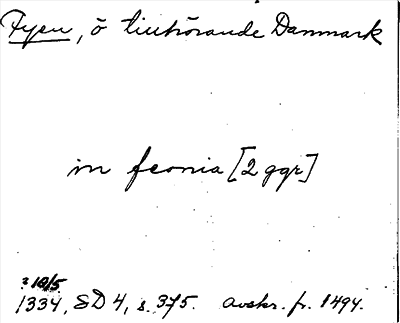 Fyen, ö tillhörande Danmark
in feonia [2 ggr]
? 18/5
1334, SD 4, s. 375. avskr. fr. 1494.